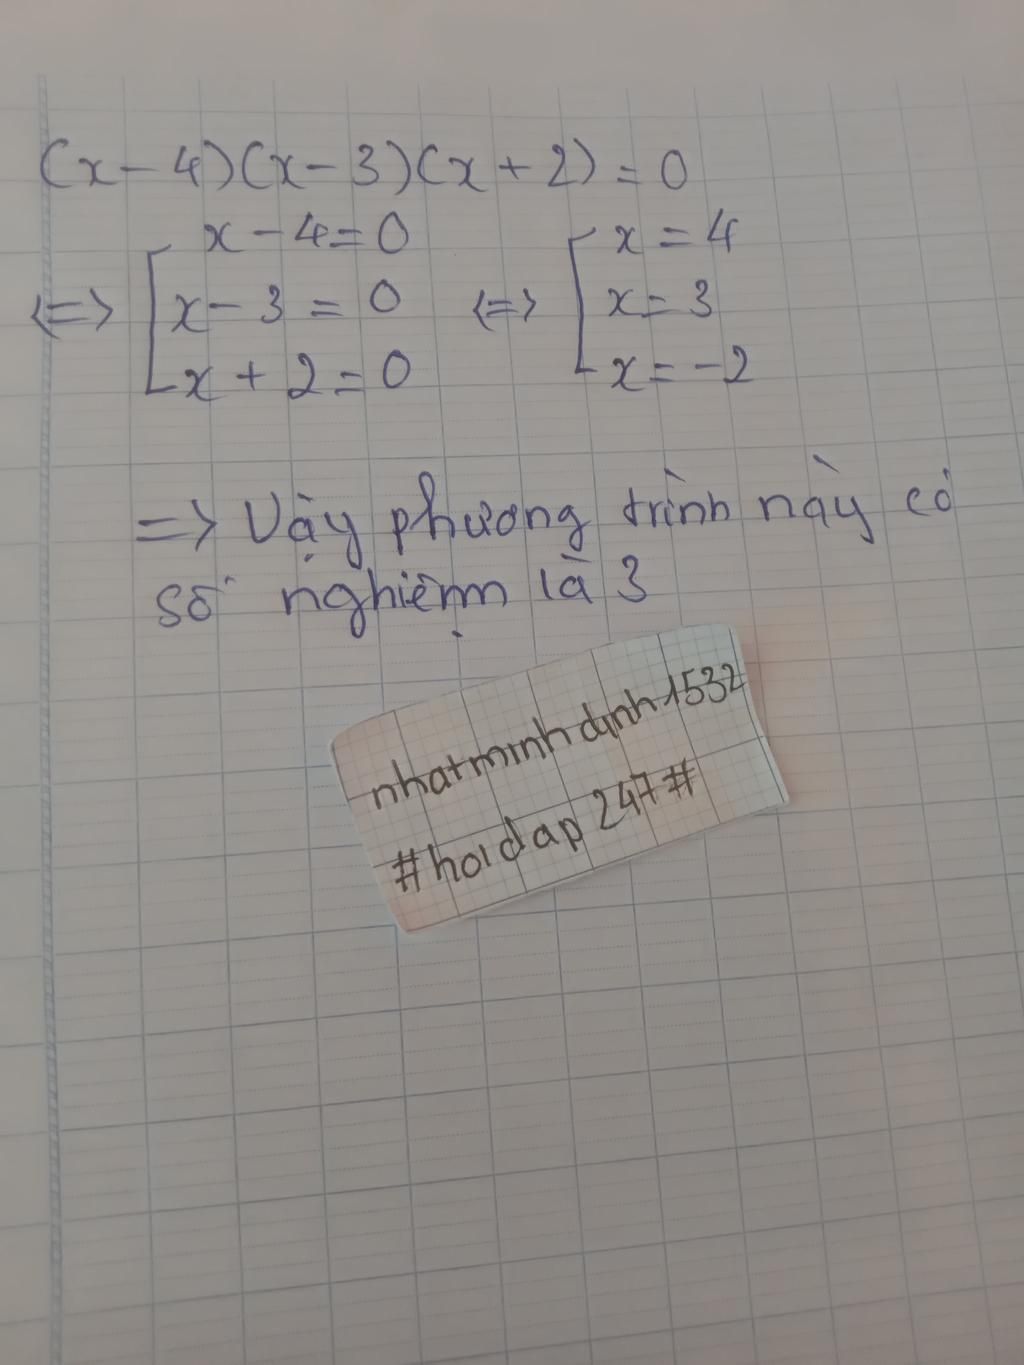 (x - 4)(x - 3)(x + 2) = 0
x - 4 = 0 x = 4
<=> x - 3 = 0 <=> x = 3
x + 2 = 0 x = -2
=> Vậy phương trình này có
số nghiệm là 3
nhatminhdinh1532
#hoidap247#